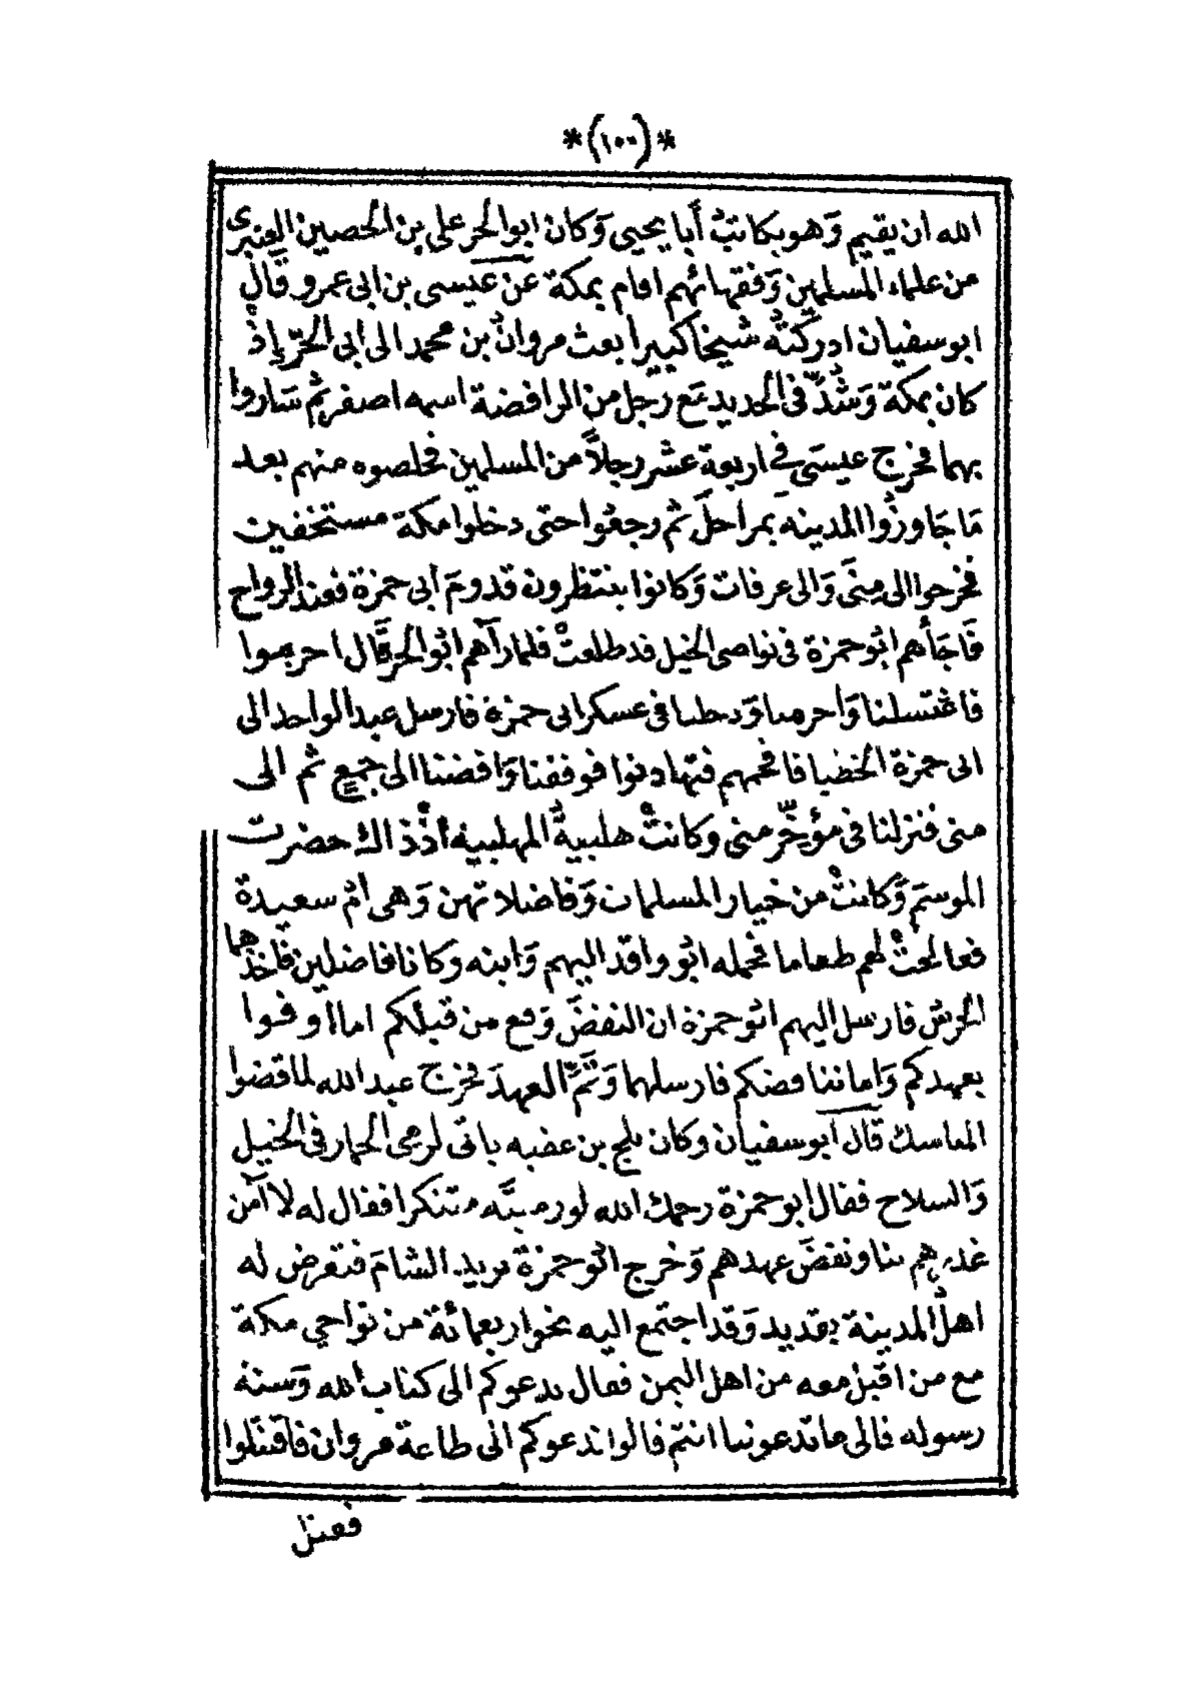 *(١٠٠)*
الله ان يقيم وَهو يكاتبُ أبا يحيى وَكان ابو الحر على بن الحصين العنبرى
من علماء المسلمين وَفقهائهم اقام بمكة عَن عَيسى بن ابى عمرو قال
ابو سفيان ادركتُه شيخا كبيرا بعث مروانُ بن محمد الى ابى الحرّ اذْ
كان بمكة وَشُدَّ فى الحديد مَع رجل من الرافضة اسمه اصفر ثم سَاروا
بهما فخرج عيسَى فى اربعة عشر رجلاً من المسلمين فخلصوه منهم بعد
مَا جَاوزُوا المدينه بمراحلَ ثم رجعُوا حتى دخلوا مكة مستخفين
فخرجوا الى مِنًى وَالى عرفات وَكانوا ينتظرون قدومَ أبى حمزة فعند الرواح
فَاجَأهم ابُو حمزة فى نواصى الخيل قد طلعتْ فلما رآهم ابُو الحر قَال احرموا
فاغتسلنا وَاحرمنا وَدخلنا فى عسكر ابى حمزة فارسل عبد الواحد الى
ابى حمزة الخطبا فافحمهم فتهادنوا فوقفنا وَافضنا الى جمعٍ ثم الى
منى فنزلنا فى مؤخَّر منى وكانتْ هلبيةُ المهلبيه أذْ ذاك حضرت
الموسمَ وَكانتْ من خيار المسلمات وَفاضلاتهن وَهى امُ سعيدة
فعالجتْ لهم طعاما فحمله ابُو واقد اليهم وَابنه وكانا فاضلين فاخذهما
الحرسُ فارسل اليهم ابُو حمزة ان النقضَ وَقع من قبلكم اما اوفوا
بعهدكم وَاما نناقضكم فارسلهما وَتَمَّ العهدَ فخرج عبد الله لما قضوا
المناسك قال ابو سفيان وكان بلج بن عقبه ياتى لرمى الجمار فى الخيل
وَالسلاح فقال ابو حمزة رحمك الله لو رميتَه متنكرا فقال له لا آمن
غدرهم بنا ونقضَ عهدهم وَخرج ابُو حمزةَ يريد الشامَ فتعرض له
اهلُ المدينة بقديد وَقد اجتمع اليه نحو اربعمائة من نواحى مكة
مع من اقبل معه من اهل اليمن فقال ندعوكم الى كتاب الله وَسنة
رسوله فالى ما تدعوننا انتم قالوا ندعوكم الى طاعة مروان فاقتتلوا
فقتل